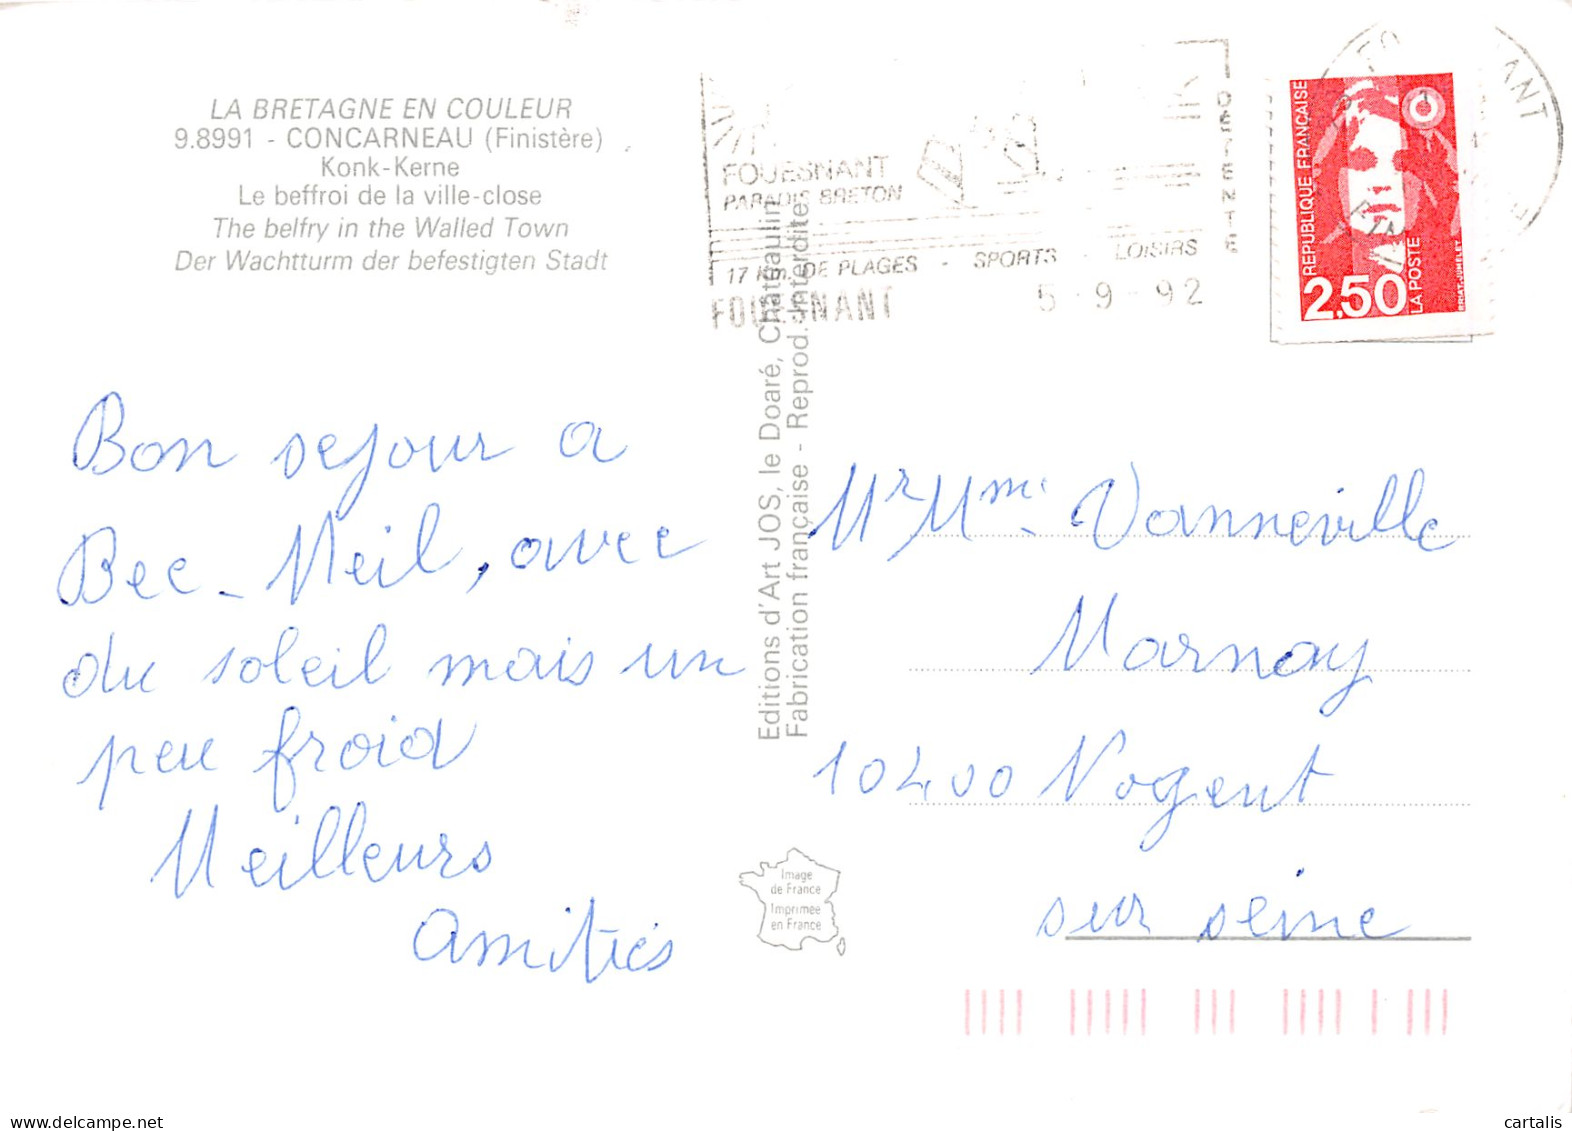 LA BRETAGNE EN COULEUR
9.8991 - CONCARNEAU (Finistère)
Konk-Kerne
Le beffroi de la ville-close
The belfry in the Walled Town
Der Wachtturm der befestigten Stadt
FOUESNANT
PARADIS BRETON
17 Km. DE PLAGES - SPORTS - LOISIRS
FOUESNANT
5 - 9 - 92
REPUBLIQUE FRANÇAISE
2,50
LA POSTE
BRIAT-JUMELET
Bon sejour a
Bec-Meil, avec
du soleil mais un
peu froid
Meilleurs
Amitiés
Editions d'Art JOS, le Doaré, Châteaulin
Fabrication française - Reprod. interdite
Mr Mme Vanneville
Marnay
10400 Nogent
sur seine
Image
de France
Imprimée
en France
delcampe.net
cartalis